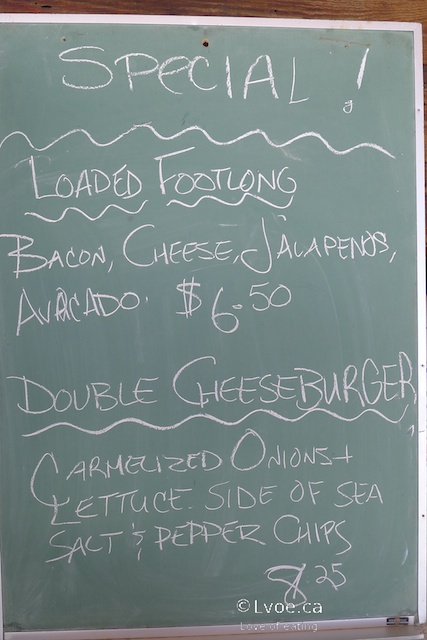 SPECIAL!
LOADED FOOTLONG
BACON, CHEESE, JALAPENOS,
AVACADO. $6.50
DOUBLE CHEESEBURGER
CARMELIZED ONIONS +
LETTUCE. SIDE OF SEA
SALT & PEPPER CHIPS
8.25
© Lvoe.ca
Love of eating